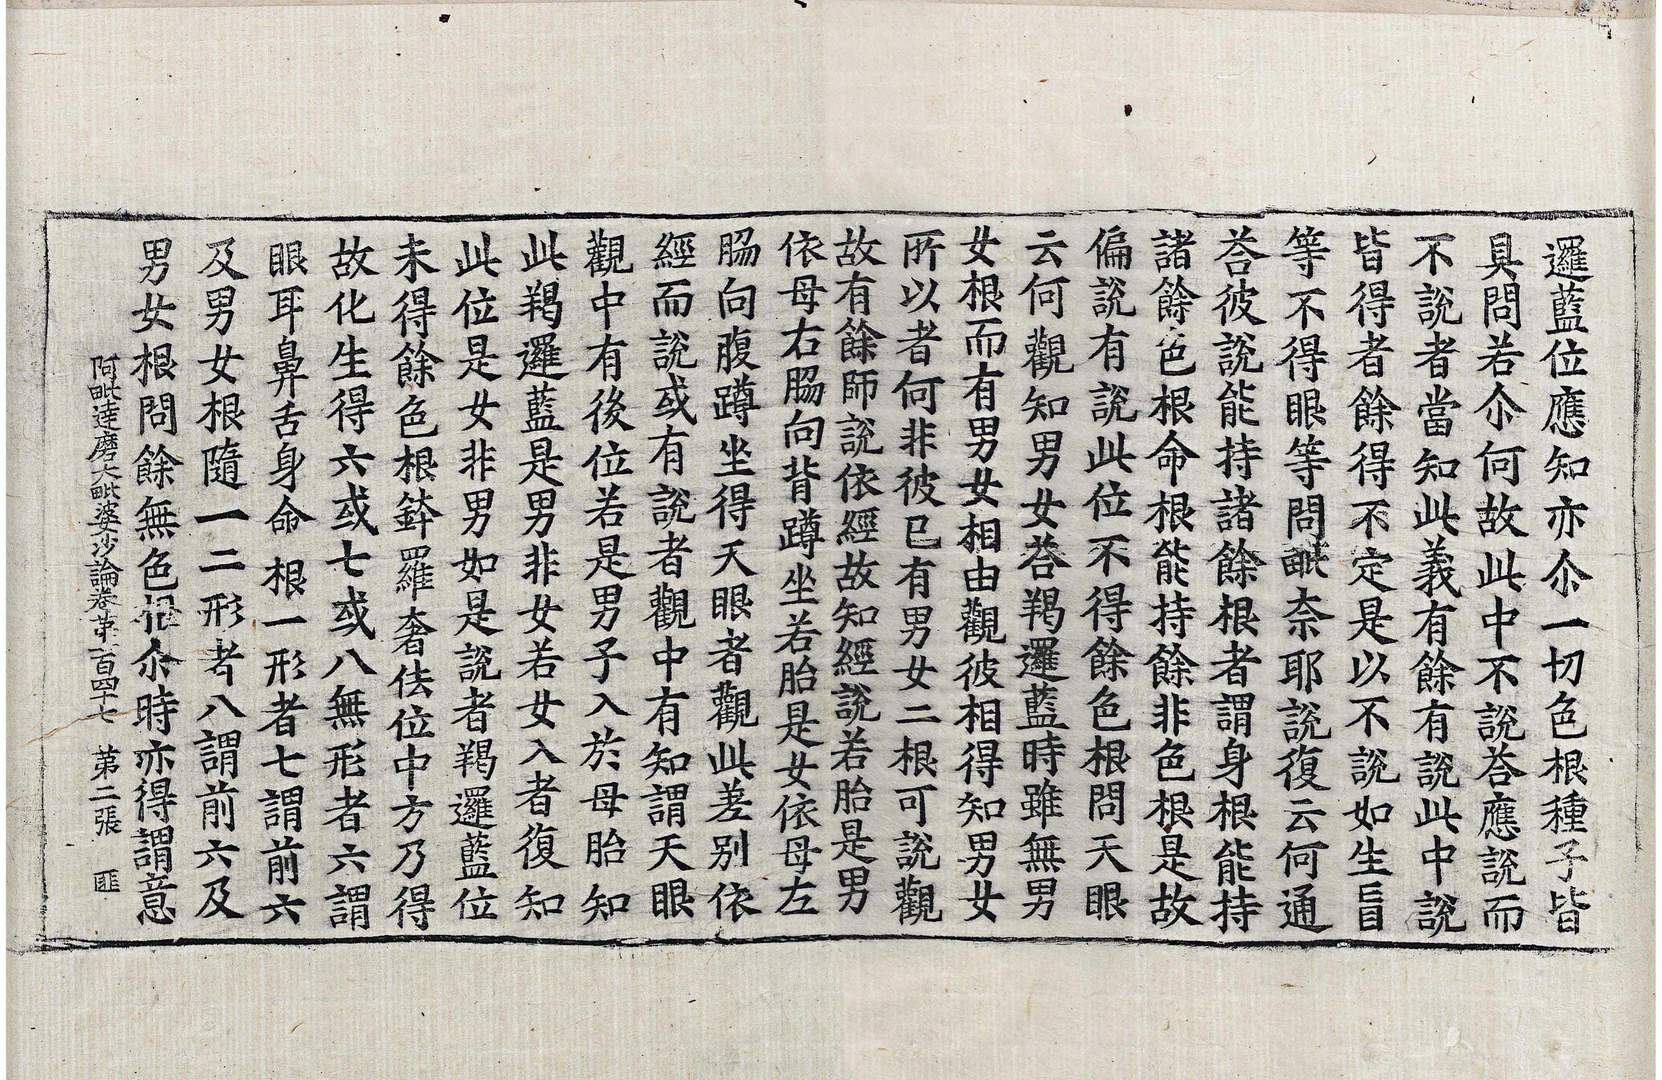 邏藍位應知亦尒一切色根種子皆
具問若尒何故此中不說荅應說而
不說者當知此義有餘有說此中說
皆得者餘得不定是以不說如生盲
等不得眼等問毗奈耶說復云何通
荅彼說能持諸餘根者謂身根能持
諸餘色根命根能持餘非色根是故
偏說有說此位不得餘色根問天眼
云何觀知男女荅羯邏藍時雖無男
女根而有男女相由觀彼相得知男女
所以者何非彼已有男女二根可說觀
故有餘師說依經故知經說若胎是男
依母右脇向背蹲坐若胎是女依母左
脇向腹蹲坐得天眼者觀此差別依
經而說或有說者觀中有知謂天眼
觀中有後位若是男子入於母胎知
此羯邏藍是男非女若女入者復知
此位是女非男如是說者羯邏藍位
未得餘色根鉢羅奢佉位中方乃得
故化生得六或七或八無形者六謂
眼耳鼻舌身命根一形者七謂前六
及男女根隨一二形者八謂前六及
男女根問餘無色根尒時亦得謂意
阿毗達磨大毗婆沙論卷第一百四十七 第二張 匪